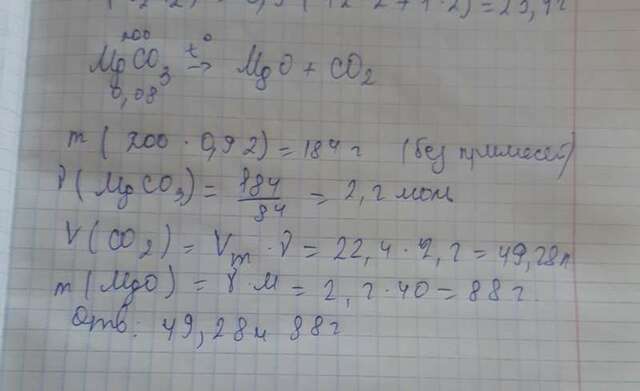 = 23,92
200 t°
MgCO₃ → MgO + CO₂
0,08
m (200 · 0,92) = 184 г (без примесей)
ν(MgCO₃) = 184/84 = 2,2 моль
V(CO₂) = Vm · ν = 22,4 · 2,2 = 49,28 л
m(MgO) = ν · M = 2,2 · 40 = 88 г.
Отв: 49,28 л 88 г